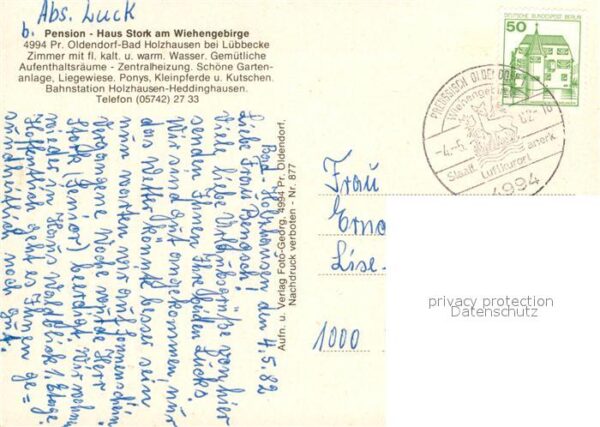 Abs. Luck
b. Pension - Haus Stork am Wiehengebirge
4994 Pr. Oldendorf-Bad Holzhausen bei Lübbecke
Zimmer mit fl. kalt. u. warm. Wasser. Gemütliche
Aufenthaltsräume - Zentralheizung. Schöne Garten-
anlage, Liegewiese. Ponys, Kleinpferde u. Kutschen.
Bahnstation Holzhausen-Heddinghausen.
Telefon (05742) 27 33
Bad Holzhausen den 4.5.82
Liebe Frau
Viele liebe Urlaubsgrüße von hier
senden Ihnen Ihre Lucks.
Wir sind gut angekommen, nur
das Wetter könnte besser sein
nun warten wir auf Sonnenschein
Vergangene Woche wurde Herr
Stork (Senior) beerdigt. Wir wohnen
wieder im Haus Waldblick 1. Etage.
Hoffentlich geht es Ihnen ge=
sundheitlich noch gut.
Aufn. u. Verlag Foto-Georg, 4994 Pr. Oldendorf.
Nachdruck verboten - Nr. 877
DEUTSCHE BUNDESPOST BERLIN
50
PREUSSISCH OLDENDORF
Wiehengebirge
-4.-5. 82-18
Staatl. anerk.
Luftkurort
4994
Frau
Erna
Lise-
1000
privacy protection
Datenschutz